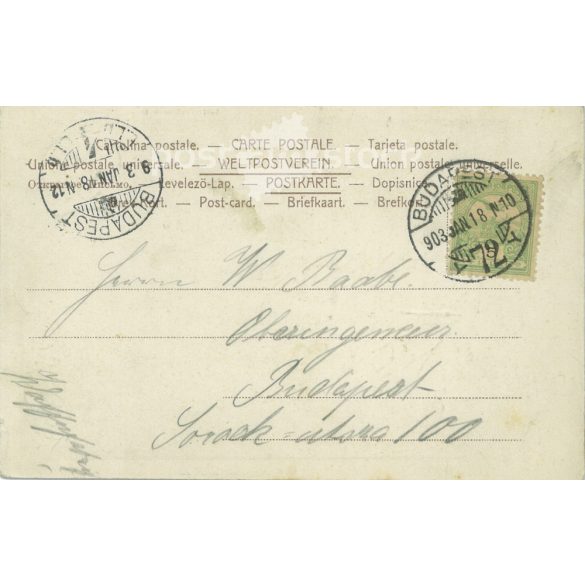 Cartolina postale. — CARTE POSTALE. — Tarjeta postale.
Unione postale universale. — WELTPOSTVEREIN. — Union postale universelle.
Levelező-Lap. — POSTKARTE. — Dopisnica
Post-card. — Briefkaart. — Brefkort
BUDAPEST
903 JAN 18 N12
BUDAPEST
903 JAN 18 N10
72
Herrn W Raabe.
Oberingenieur
Budapest
100